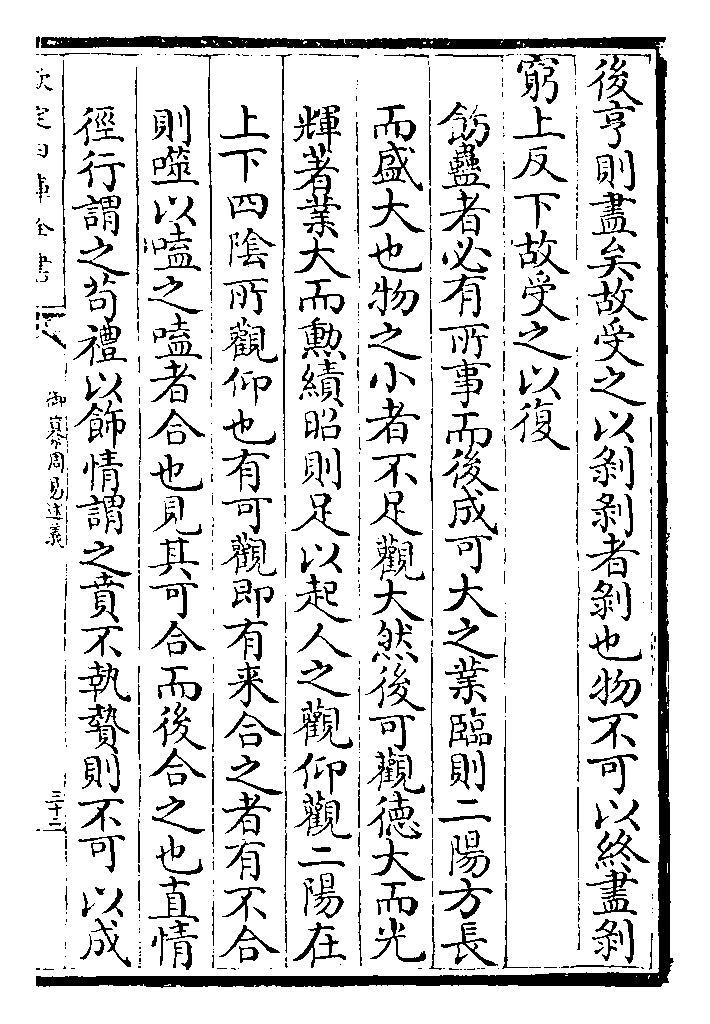 後亨則盡矣故受之以剝剝者剝也物不可以終盡剝
窮上反下故受之以復
飭蠱者必有所事而後成可大之業臨則二陽方長
而盛大也物之小者不足觀大然後可觀德大而光
輝著業大而勲績昭則足以起人之觀仰觀二陽在
上下四陰所觀仰也有可觀即有来合之者有不合
則噬以嗑之嗑者合也見其可合而後合之也直情
徑行謂之苟禮以飾情謂之賁不執贄則不可以成
欽定四庫全書
御纂周易述義
三十二